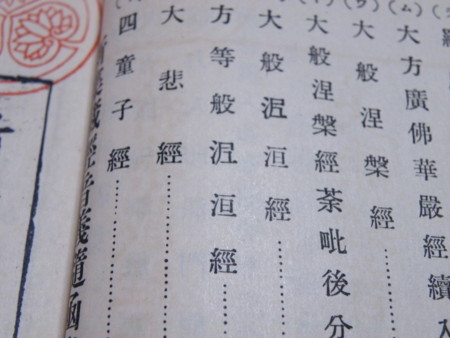 大方廣佛華嚴經續入
大般涅槃經
大般涅槃經荼毗後分
大般泥洹經
方等般泥洹經
大悲經
四童子經